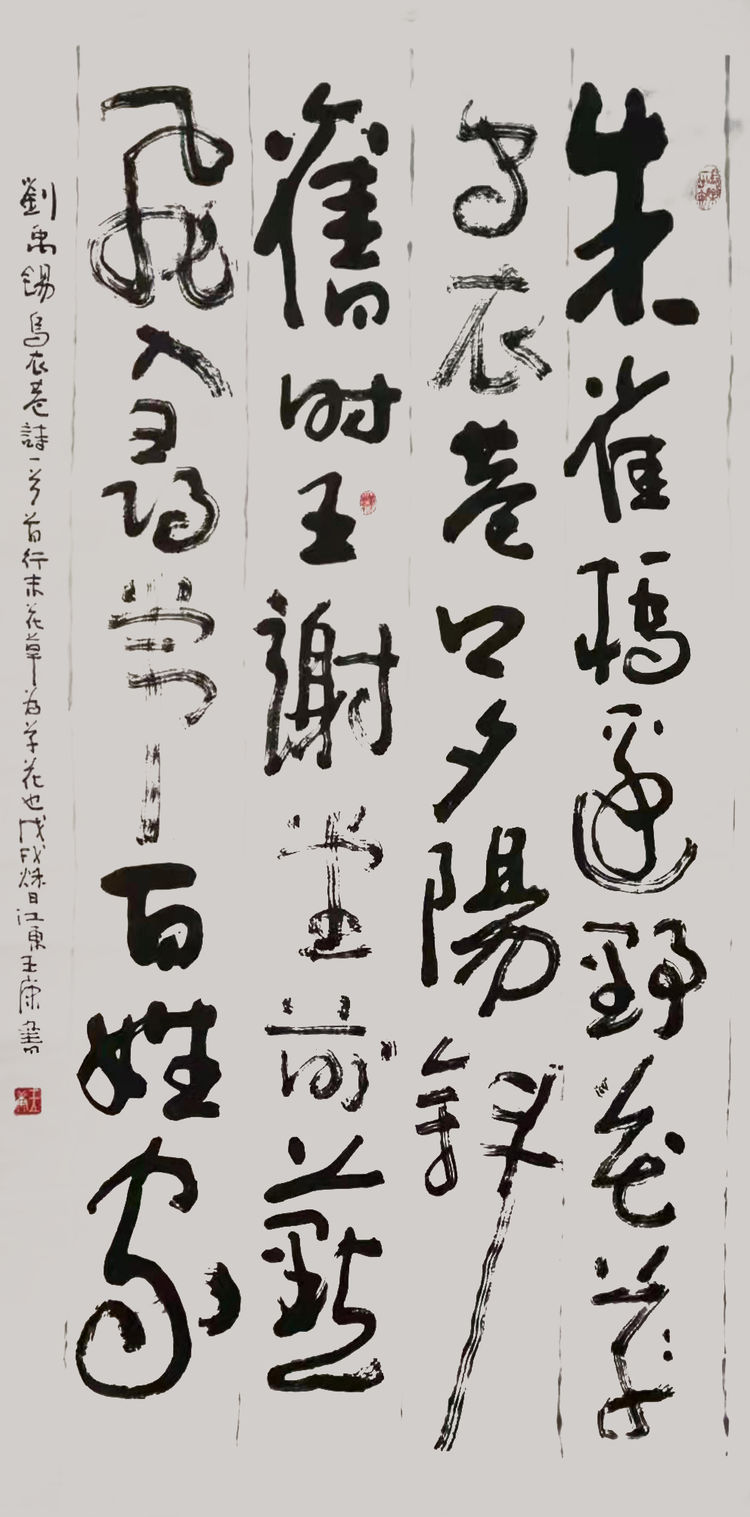 朱雀橋邊野花草
烏衣巷口夕陽斜
舊时王謝堂前燕
飛入尋常百姓家
劉禹錫烏衣巷詩一首首行末花草为草花也戊戌秌日江東王康書